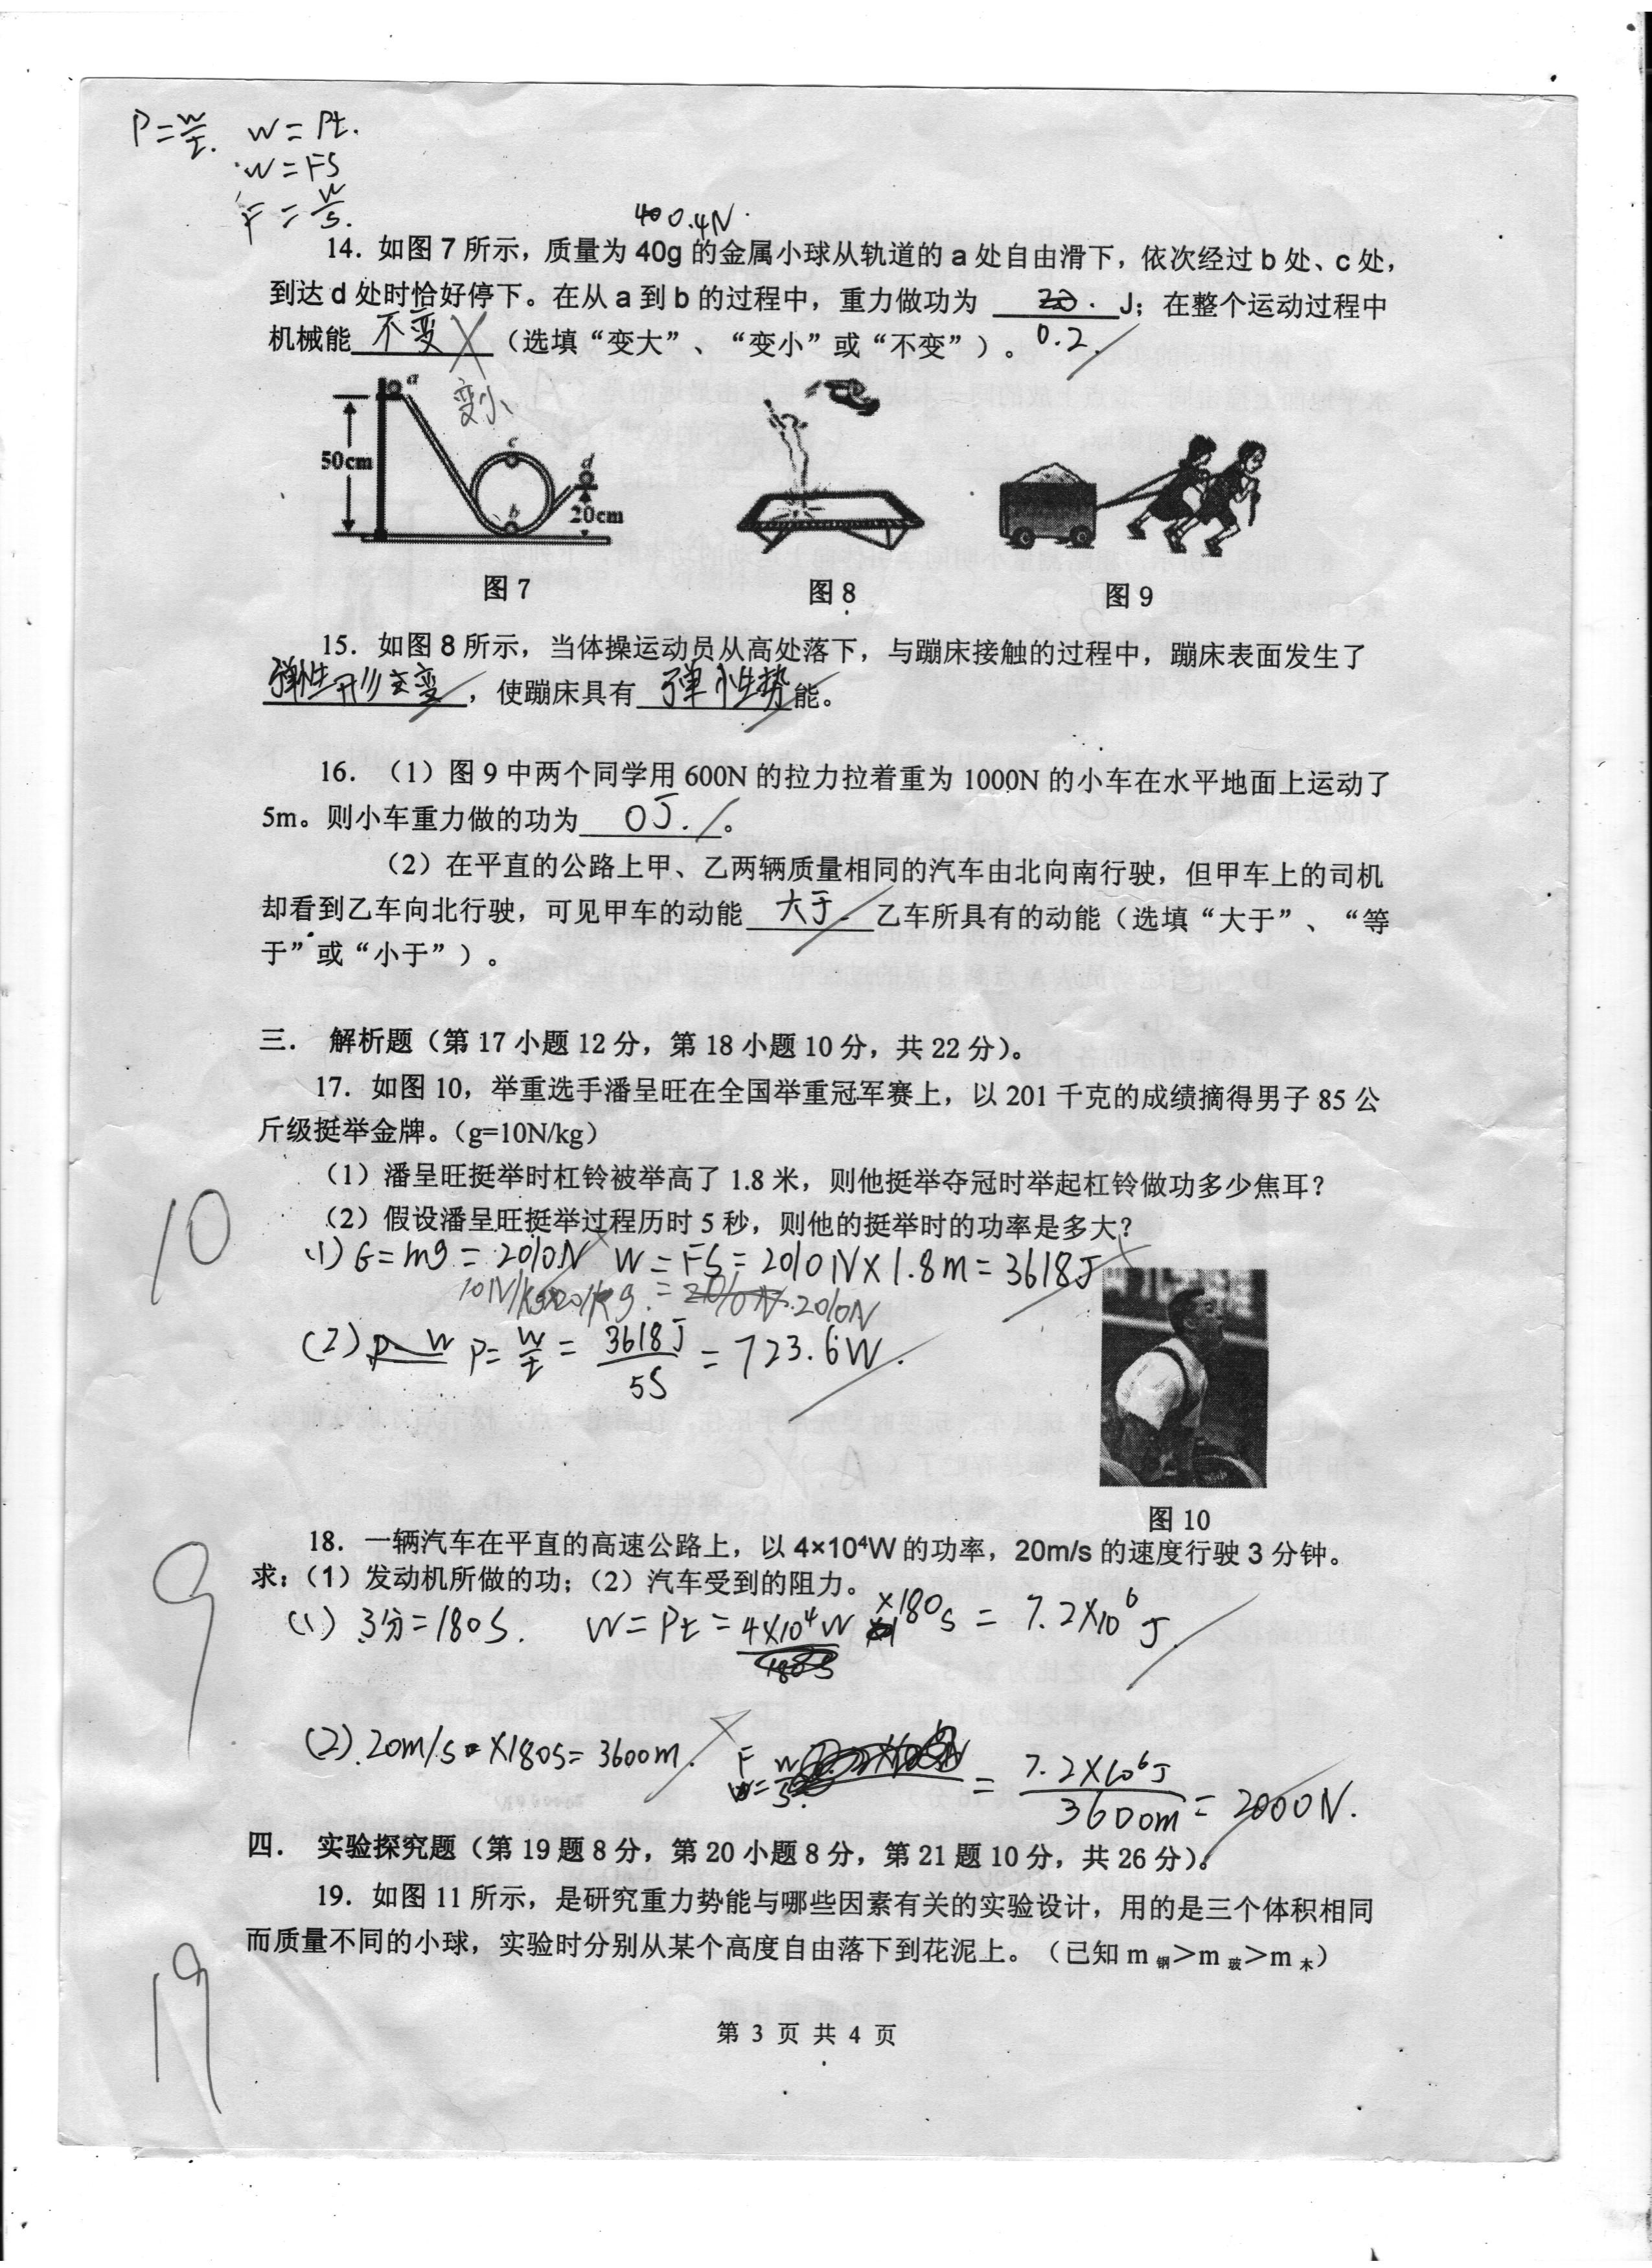 P=W/t. W=Pt.
W=FS
F=W/S.
0.4N.
14. 如图7所示，质量为40g的金属小球从轨道的a处自由滑下，依次经过b处、c处，
到达d处时恰好停下。在从a到b的过程中，重力做功为 0.2. J；在整个运动过程中
机械能 不变 （选填“变大”、“变小”或“不变”）。
变小
a
50cm
c
d
b
20cm
图7
图8
图9
15. 如图8所示，当体操运动员从高处落下，与蹦床接触的过程中，蹦床表面发生了
弹性形变，使蹦床具有 弹性势 能。
16. （1）图9中两个同学用600N的拉力拉着重为1000N的小车在水平地面上运动了
5m。则小车重力做的功为 0J. 。
（2）在平直的公路上甲、乙两辆质量相同的汽车由北向南行驶，但甲车上的司机
却看到乙车向北行驶，可见甲车的动能 大于 乙车所具有的动能（选填“大于”、“等
于”或“小于”）。
三. 解析题（第17小题12分，第18小题10分，共22分）。
17. 如图10，举重选手潘呈旺在全国举重冠军赛上，以201千克的成绩摘得男子85公
斤级挺举金牌。（g=10N/kg）
（1）潘呈旺挺举时杠铃被举高了1.8米，则他挺举夺冠时举起杠铃做功多少焦耳？
（2）假设潘呈旺挺举过程历时5秒，则他的挺举时的功率是多大？
10
(1) G=mg=2010N W=FS=2010N×1.8m=3618J
10N/kg×201kg.=2010N
(2) P=W/t=3618J/5S=723.6W.
图10
18. 一辆汽车在平直的高速公路上，以4×10⁴W的功率，20m/s的速度行驶3分钟。
求：（1）发动机所做的功；（2）汽车受到的阻力。
9
(1) 3分=180S. W=Pt=4×10⁴W×180s=7.2×10⁶J.
(2).20m/s×180s=3600m. F=W/S.=7.2×10⁶J/3600m=2000N.
四. 实验探究题（第19题8分，第20小题8分，第21题10分，共26分）。
19. 如图11所示，是研究重力势能与哪些因素有关的实验设计，用的是三个体积相同
而质量不同的小球，实验时分别从某个高度自由落下到花泥上。（已知m钢>m玻>m木）
19
第 3 页 共 4 页